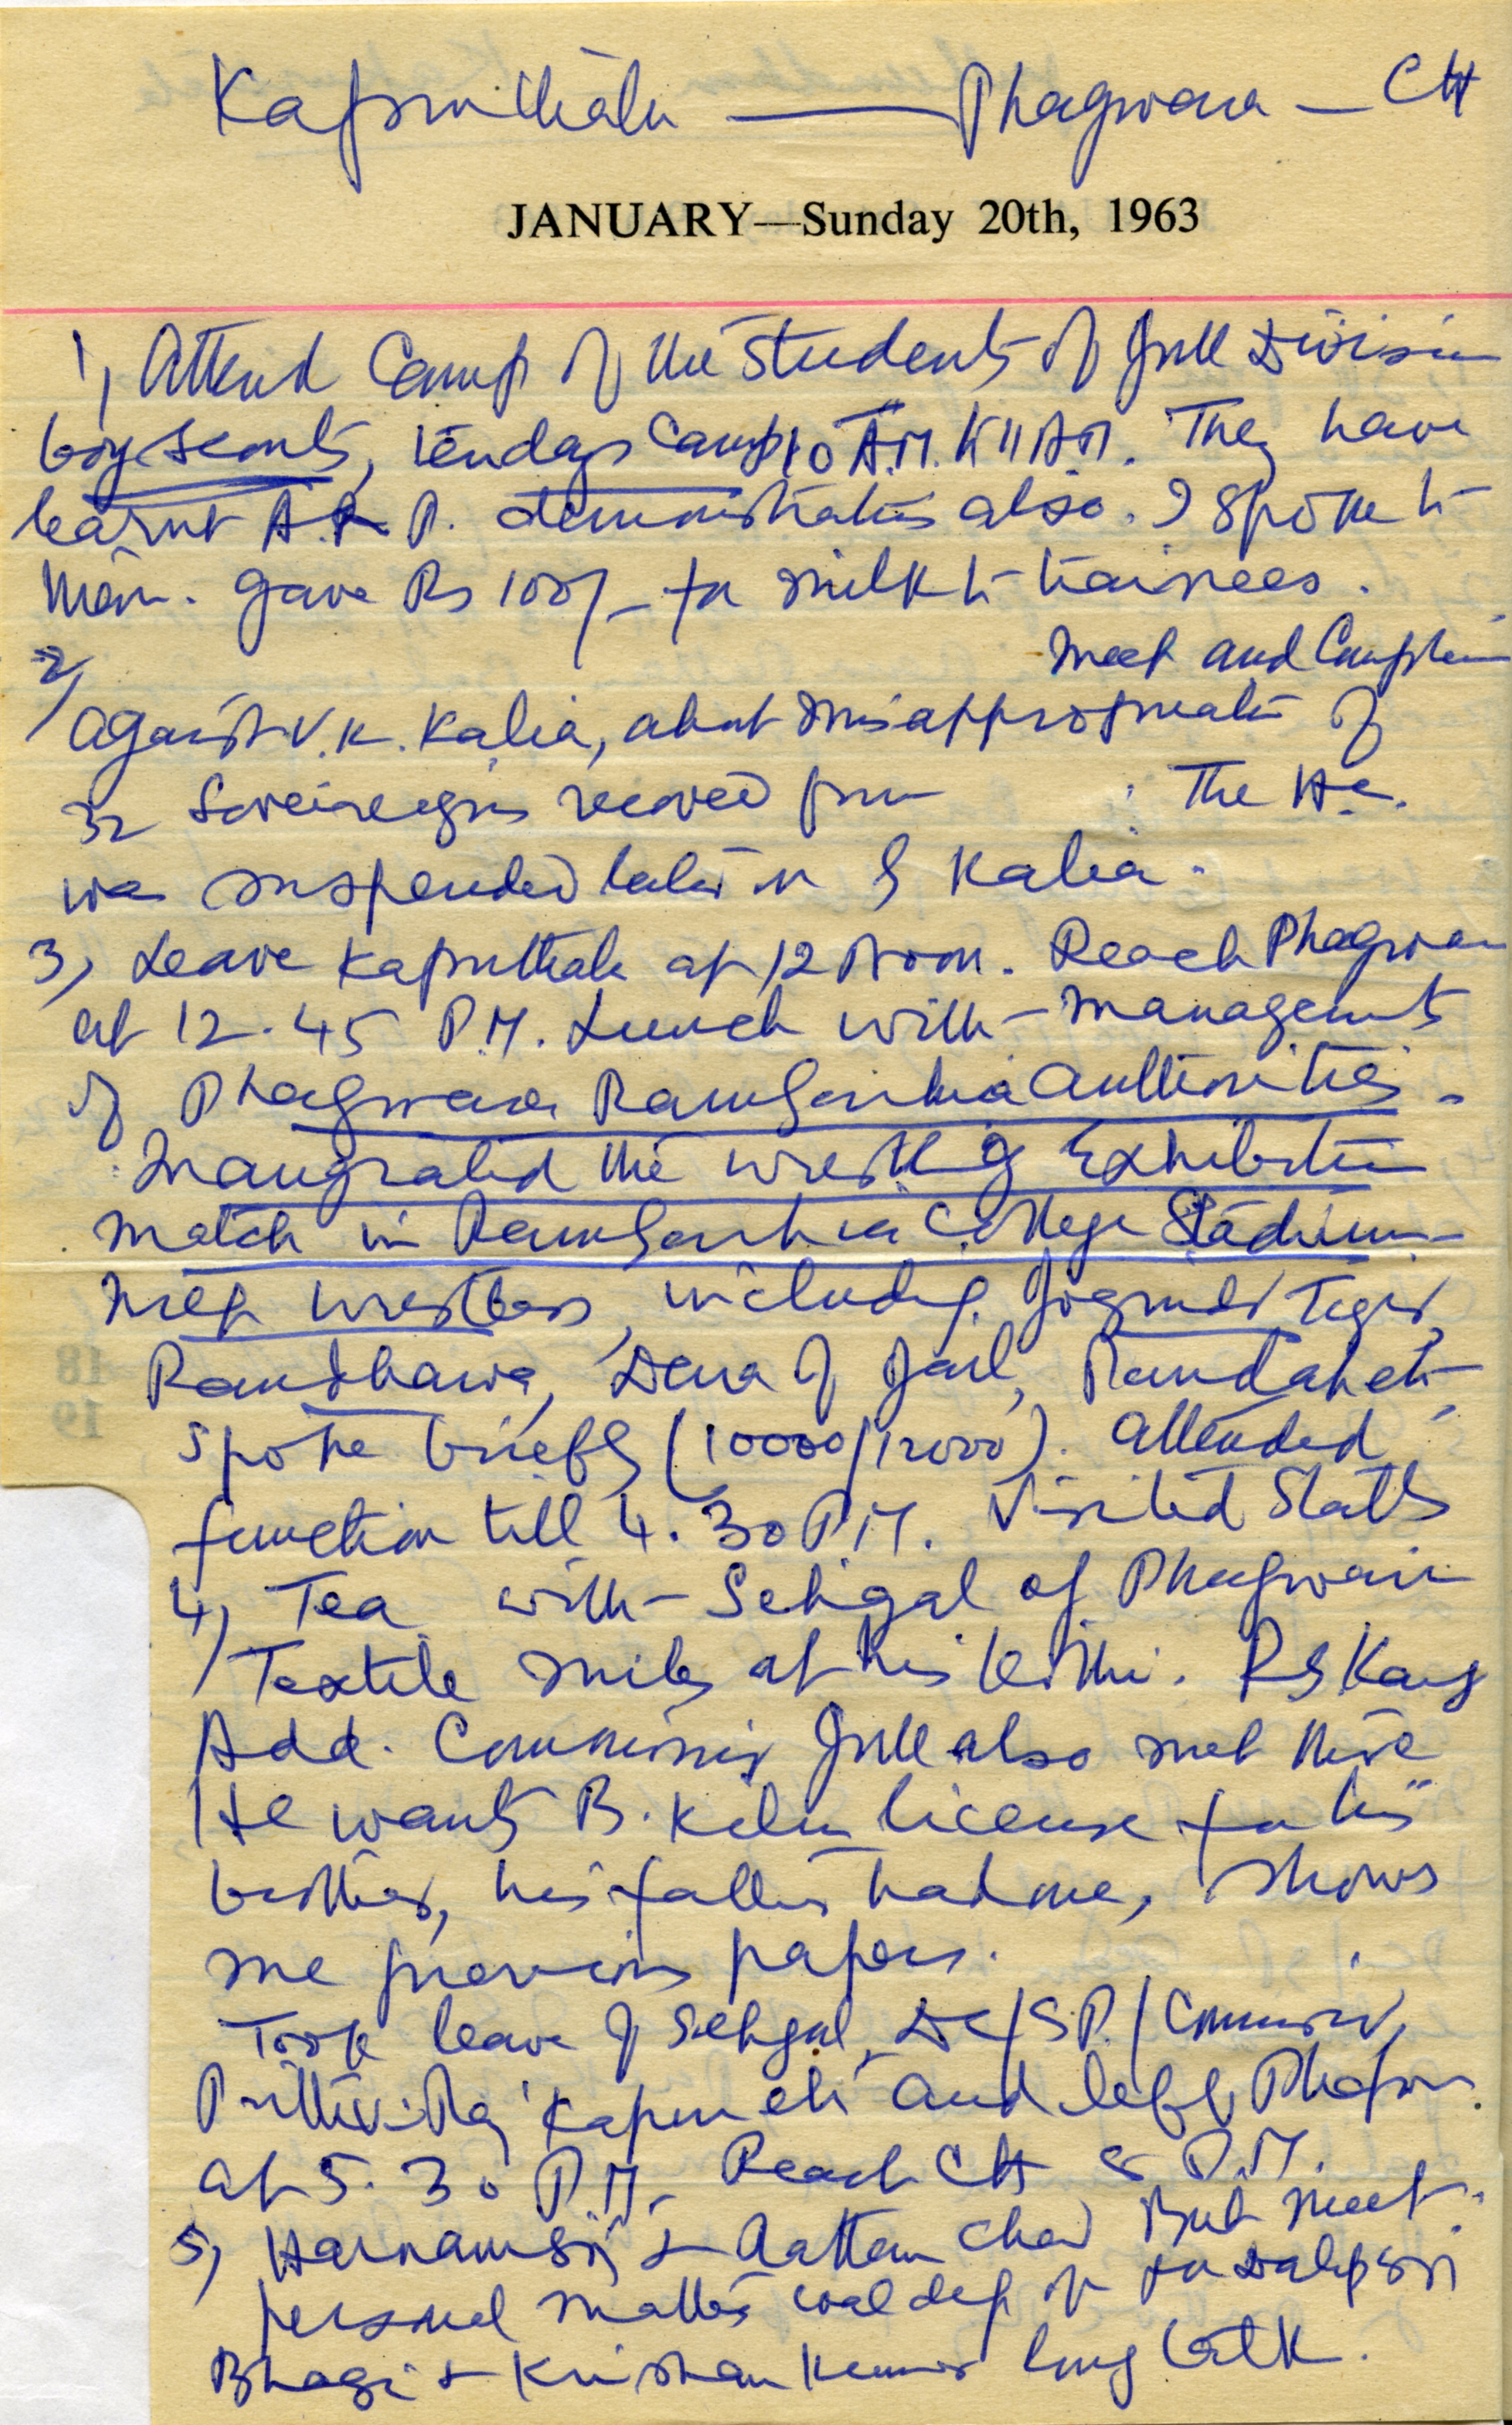 Kapurthala — Phagwara — CH
JANUARY—Sunday 20th, 1963
1, Attend Camp of the Students of Jull Division
boy scouts, tenday Camp 10 A.M. to 11 A.M. They have
learnt A.R.P. demonstration also. I spoke to
them. gave Rs 100/- for milk to trainees.
2, meet and Complain
against V.K. Kalia, about misappropriation of
32 Sovereigns received from The H.C.
was suspended later on by Kalia.
3, Leave Kapurthala at 12 Noon. Reach Phagwara
at 12.45 P.M. Lunch with managements
of Phagwara Ramgarhia authorities.
Inaugrated the wrestling Exhibition
match in Ramgarhia College Stadium
meet wrestlers, including Joginder Tiger,
Randhawa, Dara of Jail,
spoke briefly (10000/12000). attended
function till 4.30 P.M. Visited Stalls
4, Tea with Sehgal of Phagwara
Textile mills at his Kothi. RS Kang
Add. Commissioner Jull also met there
He wants B. Kiln license for his
brother, his father had one, shows
me previous papers.
Took leave of Sehgal, DC/S.P./Commissioner,
Prithvi Raj Kapur etc and left Phagwara
at 5.30 P.M. Reach CH 8 P.M.
5, Harnam Singh & Rattan Chand meet.
personal matter coal depot for Dalip Singh
Bhagi & Krishan Kumar long talk.